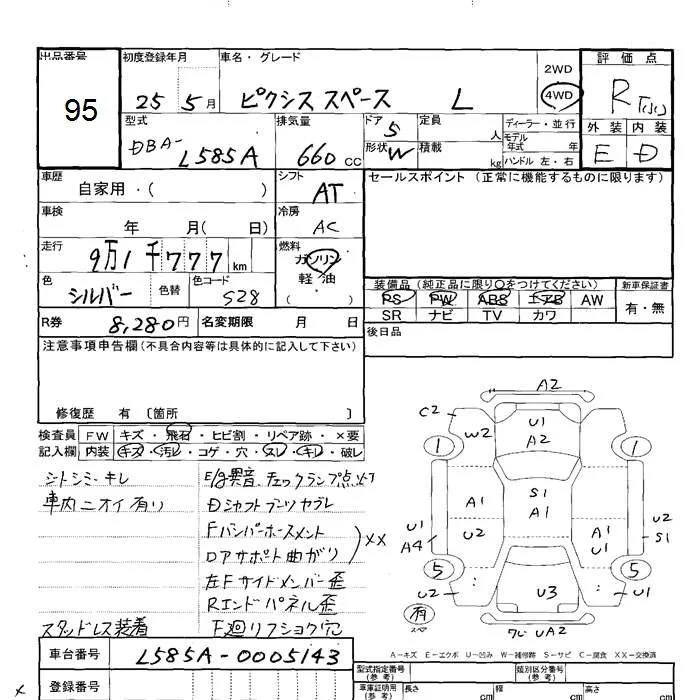 出品番号
95
初度登録年月
25 5月
車名・グレード
ピクシス スペース L
2WD
4WD
評価点
R
外装 内装
E D
型式
DBA-L585A
排気量
660 cc
ドア 5
形状 W
定員 人
積載 kg
ディーラー・並行
モデル年式 年
ハンドル 左・右
車歴
自家用・( )
シフト
AT
車検
年 月( 日)
冷房
AC
走行
9万1千777 km
燃料
ガソリン
軽・油
( )
色
シルバー
色替
色コード
S28
R券
8,280円
名変期限 月 日
セールスポイント (正常に機能するものに限ります)
装備品 (純正品に限り○をつけてください)
PS PW ABS エアB AW
SR ナビ TV カワ
新車保証書
有・無
後日品
注意事項申告欄(不具合内容等は具体的に記入して下さい)
修復歴 有 〔箇所 〕
検査員記入欄
FW キズ・飛石・ヒビ割・リペア跡・×要
内装 キズ・汚レ・コゲ・穴・スレ・キレ・破レ
シトシミ・キレ
車内ニオイ有り
スタッドレス装着
E/g異音、チェックランプ点灯
Dシャフトブーツヤブレ
Fバンパーホースメント
Dアサポート曲がり
XX
左Fサイドメンバー歪
Rエンドパネル歪
F廻リフショク穴
A2
C2
W2
U1
A2
1
1
A1
S1
A1
U1
A4
U2
A1
U1
U2
S1
5
5
U2
U3
U1
有
スペ
ワレ UA2
A-キズ E-エクボ U-凹み W-補修跡 S-サビ C-腐食 XX-交換済
車台番号
L585A-0005143
登録番号
型式指定番号
類別区分番号
車庫証明用(参考)
長さ cm
幅 cm
高さ cm